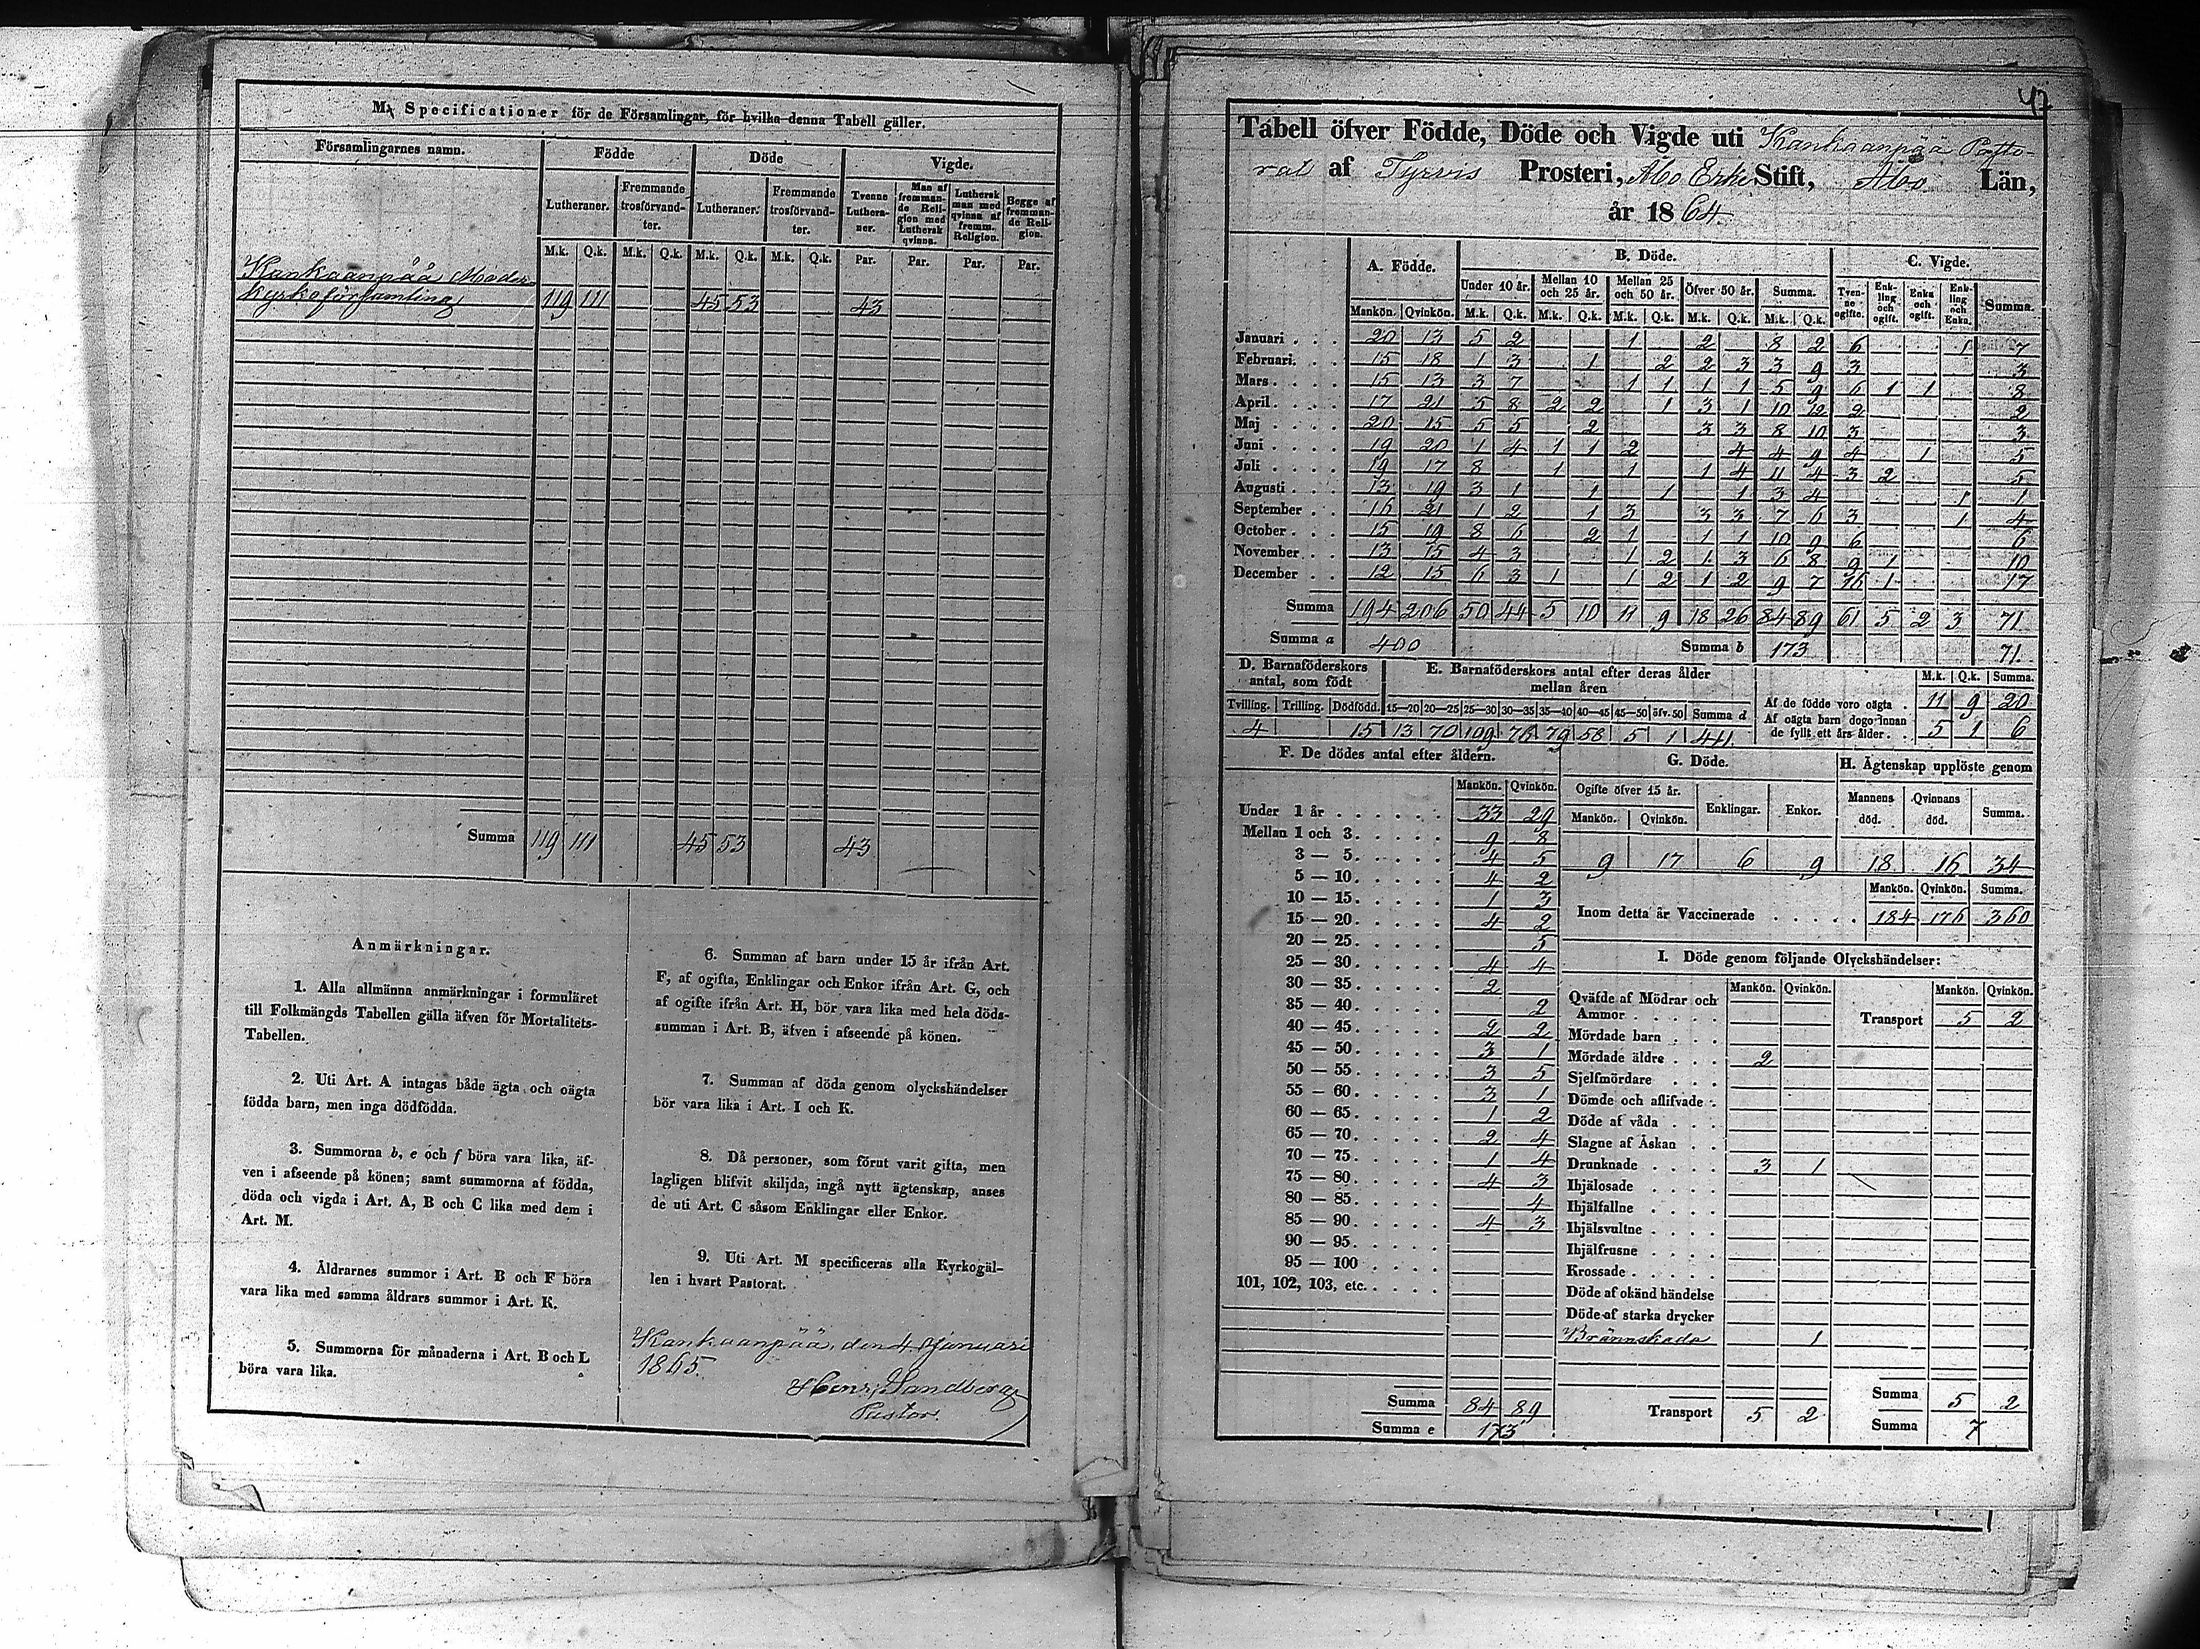 M. Specificationer för de Församlingar, för hvilka denna Tabell gäller.
Församlingarnes namn. Födde Döde Vigde.
Lutheraner. Fremmande trosförvandter. Lutheraner. Fremmande trosförvandter. Tvenne Lutheraner. Man af fremmande Religion med Luthersk qvinna. Luthersk man med qvinna af fremm. Religion. Begge af fremmande Religion.
M.k. Q.k. M.k. Q.k. M.k. Q.k. M.k. Q.k. Par. Par. Par. Par.
Kankaanpää Moder
kyrkoförsamling 119 111 45 53 43
Summa 119 111 45 53 43
Anmärkningar.
1. Alla allmänna anmärkningar i formuläret
till Folkmängds Tabellen gälla äfven för Mortalitets-
Tabellen.
2. Uti Art. A intagas både ägta och oägta
födda barn, men inga dödfödda.
3. Summorna b, e och f böra vara lika, äf-
ven i afseende på könen; samt summorna af födda,
döda och vigda i Art. A, B och C lika med dem i
Art. M.
4. Åldrarnes summor i Art. B och F böra
vara lika med samma åldrars summor i Art. K.
5. Summorna för månaderna i Art. B och L
böra vara lika.
6. Summan af barn under 15 år ifrån Art.
F, af ogifta, Enklingar och Enkor ifrån Art. G, och
af ogifte ifrån Art. H, bör vara lika med hela döds-
summan i Art. B, äfven i afseende på könen.
7. Summan af döda genom olyckshändelser
bör vara lika i Art. I och K.
8. Då personer, som förut varit gifta, men
lagligen blifvit skiljda, ingå nytt ägtenskap, anses
de uti Art. C såsom Enklingar eller Enkor.
9. Uti Art. M specificeras alla Kyrkogäl-
len i hvart Pastorat.
Kankaanpää, den 4 Januari
1865.
Sandberg
Pastor.
47
Tabell öfver Födde, Döde och Vigde uti Kankaanpää Pasto-
rat af Tyrvis Prosteri, Åbo Erke Stift, Åbo Län,
år 1864.
A. Födde. B. Döde. C. Vigde.
Under 10 år. Mellan 10 och 25 år. Mellan 25 och 50 år. Öfver 50 år. Summa. Tvenne ogifte. Enkling och ogift. Enka och ogift. Enkling och Enka. Summa.
Mankön. Qvinkön. M.k. Q.k. M.k. Q.k. M.k. Q.k. M.k. Q.k. M.k. Q.k.
Januari . . . 20 13 5 2 1 2 8 2 6 1 7
Februari. . . 15 18 1 3 1 2 2 3 3 9 3 3
Mars . . . . 15 13 3 7 1 1 1 1 5 9 6 1 1 8
April. . . . 17 21 5 8 2 2 1 3 1 10 12 2 2
Maj . . . . 20 15 5 5 2 3 3 8 10 3 3
Juni . . . . 19 20 1 4 1 1 2 4 4 9 4 1 5
Juli . . . . 19 17 8 1 1 1 4 11 4 3 2 5
Augusti . . . 13 19 3 1 1 1 1 3 4 1 1
September . . 16 21 1 2 1 3 3 3 7 6 3 1 4
October . . . 15 19 8 6 2 1 1 1 10 9 6 6
November . . 13 15 4 3 1 2 1 3 6 8 9 1 10
December . . 12 15 6 3 1 1 2 1 2 9 7 16 1 17
Summa 194 206 50 44 5 10 11 9 18 26 84 89 61 5 2 3 71
Summa a 400 Summa b 173 71.
D. Barnaföderskors antal, som födt
E. Barnaföderskors antal efter deras ålder mellan åren
M.k. Q.k. Summa.
Tvilling. Trilling. Dödfödd. 15—20 20—25 25—30 30—35 35—40 40—45 45—50 öfv. 50 Summa d
4 15 13 70 109 76 79 58 5 1 411.
Af de födde voro oägta . 11 9 20
Af oägta barn dogo innan de fyllt ett års ålder . . 5 1 6
F. De dödes antal efter åldern.
Mankön. Qvinkön.
Under 1 år . . . . . . 33 29
Mellan 1 och 3. . . . . 9 8
3 — 5. . . . . 4 5
5 — 10. . . . . 4 2
10 — 15. . . . . 1 3
15 — 20. . . . . 4 2
20 — 25. . . . . 5
25 — 30. . . . . 4 4
30 — 35. . . . . 2
35 — 40. . . . . 2
40 — 45. . . . . 2 2
45 — 50. . . . . 3 1
50 — 55. . . . . 3 5
55 — 60. . . . . 3 1
60 — 65. . . . . 1 2
65 — 70. . . . . 2 4
70 — 75. . . . . 1 4
75 — 80. . . . . 4 3
80 — 85. . . . . 4
85 — 90. . . . . 4 3
90 — 95. . . . .
95 — 100 . . . .
101, 102, 103, etc. . . . .
Summa 84 89
Summa e 173
G. Döde.
Ogifte öfver 15 år. Enklingar. Enkor.
Mankön. Qvinkön.
9 17 6 9
H. Ägtenskap upplöste genom
Mannens död. Qvinnans död. Summa.
18 16 34
Mankön. Qvinkön. Summa.
Inom detta år Vaccinerade . . . . . 184 176 360
I. Döde genom följande Olyckshändelser:
Mankön. Qvinkön. Mankön. Qvinkön.
Qväfde af Mödrar och
Ammor . . . . .
Transport 5 2
Mördade barn . . .
Mördade äldre . . . 2
Sjelfmördare . . .
Dömde och aflifvade .
Döde af våda . . .
Slagne af Åskan . .
Drunknade . . . . 3 1
Ihjälosade . . . .
Ihjälfallne . . . .
Ihjälsvultne . . . .
Ihjälfrusne . . . .
Krossade . . . . .
Döde af okänd händelse
Döde af starka drycker
Brännskada 1
Transport 5 2
Summa 5 2
Summa 7